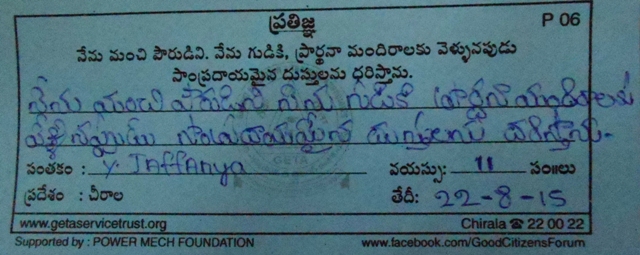 ప్రతిజ్ఞ P 06
నేను మంచి పౌరుడిని. నేను గుడికి, ప్రార్థనా మందిరాలకు వెళ్ళునపుడు
సాంప్రదాయమైన దుస్తులను ధరిస్తాను.
నేను మంచి పౌరుడిని నేను గుడికి ప్రార్థనా మందిరాలకు
వెళ్ళినప్పుడు సాంప్రదాయమైన దుస్తులను ధరిస్తాను.
సంతకం : Y. Jaffanya వయస్సు: 11 సం॥లు
ప్రదేశం : చీరాల తేదీ: 22-8-15
www.getaservicetrust.org Chirala ☎ 22 00 22
Supported by : POWER MECH FOUNDATION www.facebook.com/GoodCitizensForum